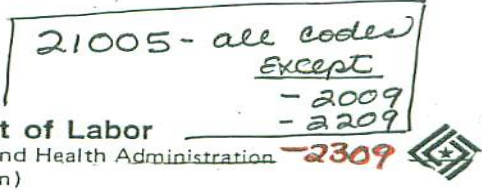 21005 - all codes
Except
- 2009
- 2209
t of Labor
nd Health Administration -2309
n)